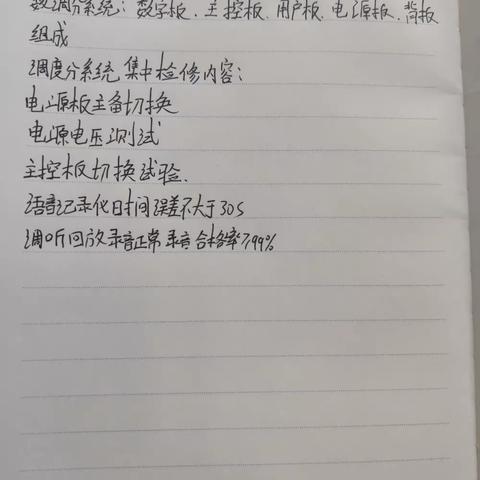 数调分系统：数字板、主控板、用户板、电源板、背板
组成
调度分系统集中检修内容：
电源板主备切换
电源电压测试
主控板切换试验.
语音记录仪日时间误差不大于30s
调听回放录音正常 录音合格率≥99%